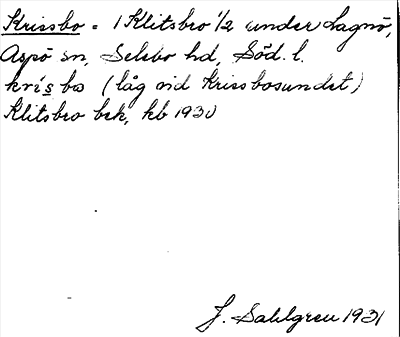 Krissbo = 1 Klitsbro 1/2 under Lagnö,
Aspö sn, Selebo hd, Söd. l.
krìsbo (låg vid Krissbosundet)
Klitsbro bsk, kb 1930
J. Sahlgren 1931